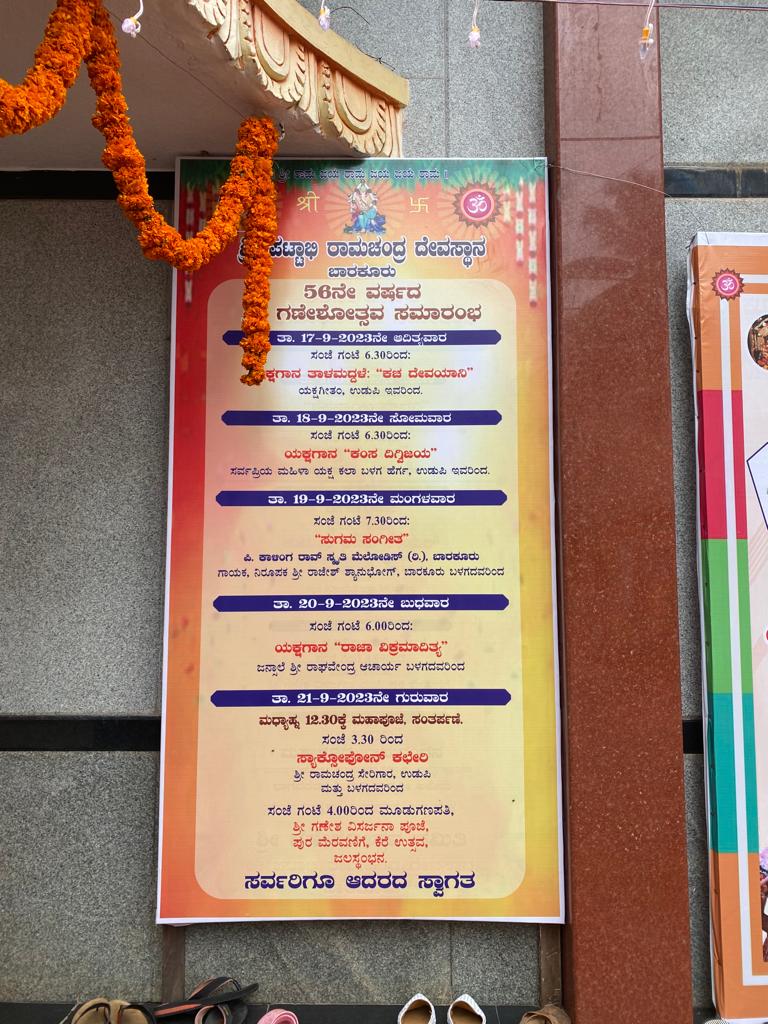 ಶ್ರೀ ರಾಮ ಜಯ ರಾಮ ಜಯ ಜಯ ರಾಮ ।
ಶ್ರೀ 卐 ॐ
ಪಟ್ಟಾಭಿ ರಾಮಚಂದ್ರ ದೇವಸ್ಥಾನ
ಬಾರಕೂರು
56ನೇ ವರ್ಷದ
ಗಣೇಶೋತ್ಸವ ಸಮಾರಂಭ
ತಾ. 17-9-2023ನೇ ಆದಿತ್ಯವಾರ
ಸಂಜೆ ಗಂಟೆ 6.30ರಿಂದ:
ಯಕ್ಷಗಾನ ತಾಳಮದ್ದಳೆ: "ಕಚ ದೇವಯಾನಿ"
ಯಕ್ಷಗೀತಂ, ಉಡುಪಿ ಇವರಿಂದ.
ತಾ. 18-9-2023ನೇ ಸೋಮವಾರ
ಸಂಜೆ ಗಂಟೆ 6.30ರಿಂದ:
ಯಕ್ಷಗಾನ "ಕಂಸ ದಿಗ್ವಿಜಯ"
ಸರ್ವಪ್ರಿಯ ಮಹಿಳಾ ಯಕ್ಷ ಕಲಾ ಬಳಗ ಹೆರ್ಗ, ಉಡುಪಿ ಇವರಿಂದ.
ತಾ. 19-9-2023ನೇ ಮಂಗಳವಾರ
ಸಂಜೆ ಗಂಟೆ 7.30ರಿಂದ:
"ಸುಗಮ ಸಂಗೀತ"
ಪಿ. ಕಾಳಿಂಗ ರಾವ್ ಸ್ಮೃತಿ ಮೆಲೋಡಿಸ್ (ರಿ.), ಬಾರಕೂರು
ಗಾಯಕ, ನಿರೂಪಕ ಶ್ರೀ ರಾಜೇಶ್ ಶ್ಯಾನುಭೋಗ್, ಬಾರಕೂರು ಬಳಗದವರಿಂದ
ತಾ. 20-9-2023ನೇ ಬುಧವಾರ
ಸಂಜೆ ಗಂಟೆ 6.00ರಿಂದ:
ಯಕ್ಷಗಾನ "ರಾಜಾ ವಿಕ್ರಮಾದಿತ್ಯ"
ಜನ್ಸಾಲೆ ಶ್ರೀ ರಾಘವೇಂದ್ರ ಆಚಾರ್ಯ ಬಳಗದವರಿಂದ
ತಾ. 21-9-2023ನೇ ಗುರುವಾರ
ಮಧ್ಯಾಹ್ನ 12.30ಕ್ಕೆ ಮಹಾಪೂಜೆ, ಸಂತರ್ಪಣೆ.
ಸಂಜೆ 3.30 ರಿಂದ
ಸ್ಯಾಕ್ಸೋಫೋನ್ ಕಛೇರಿ
ಶ್ರೀ ರಾಮಚಂದ್ರ ಸೇರಿಗಾರ, ಉಡುಪಿ
ಮತ್ತು ಬಳಗದವರಿಂದ
ಸಂಜೆ ಗಂಟೆ 4.00ರಿಂದ ಮೂಡುಗಣಪತಿ,
ಶ್ರೀ ಗಣೇಶ ವಿಸರ್ಜನಾ ಪೂಜೆ,
ಪುರ ಮೆರವಣಿಗೆ, ಕೆರೆ ಉತ್ಸವ,
ಜಲಸ್ಥಂಭನ.
ಸರ್ವರಿಗೂ ಆದರದ ಸ್ವಾಗತ
ॐ